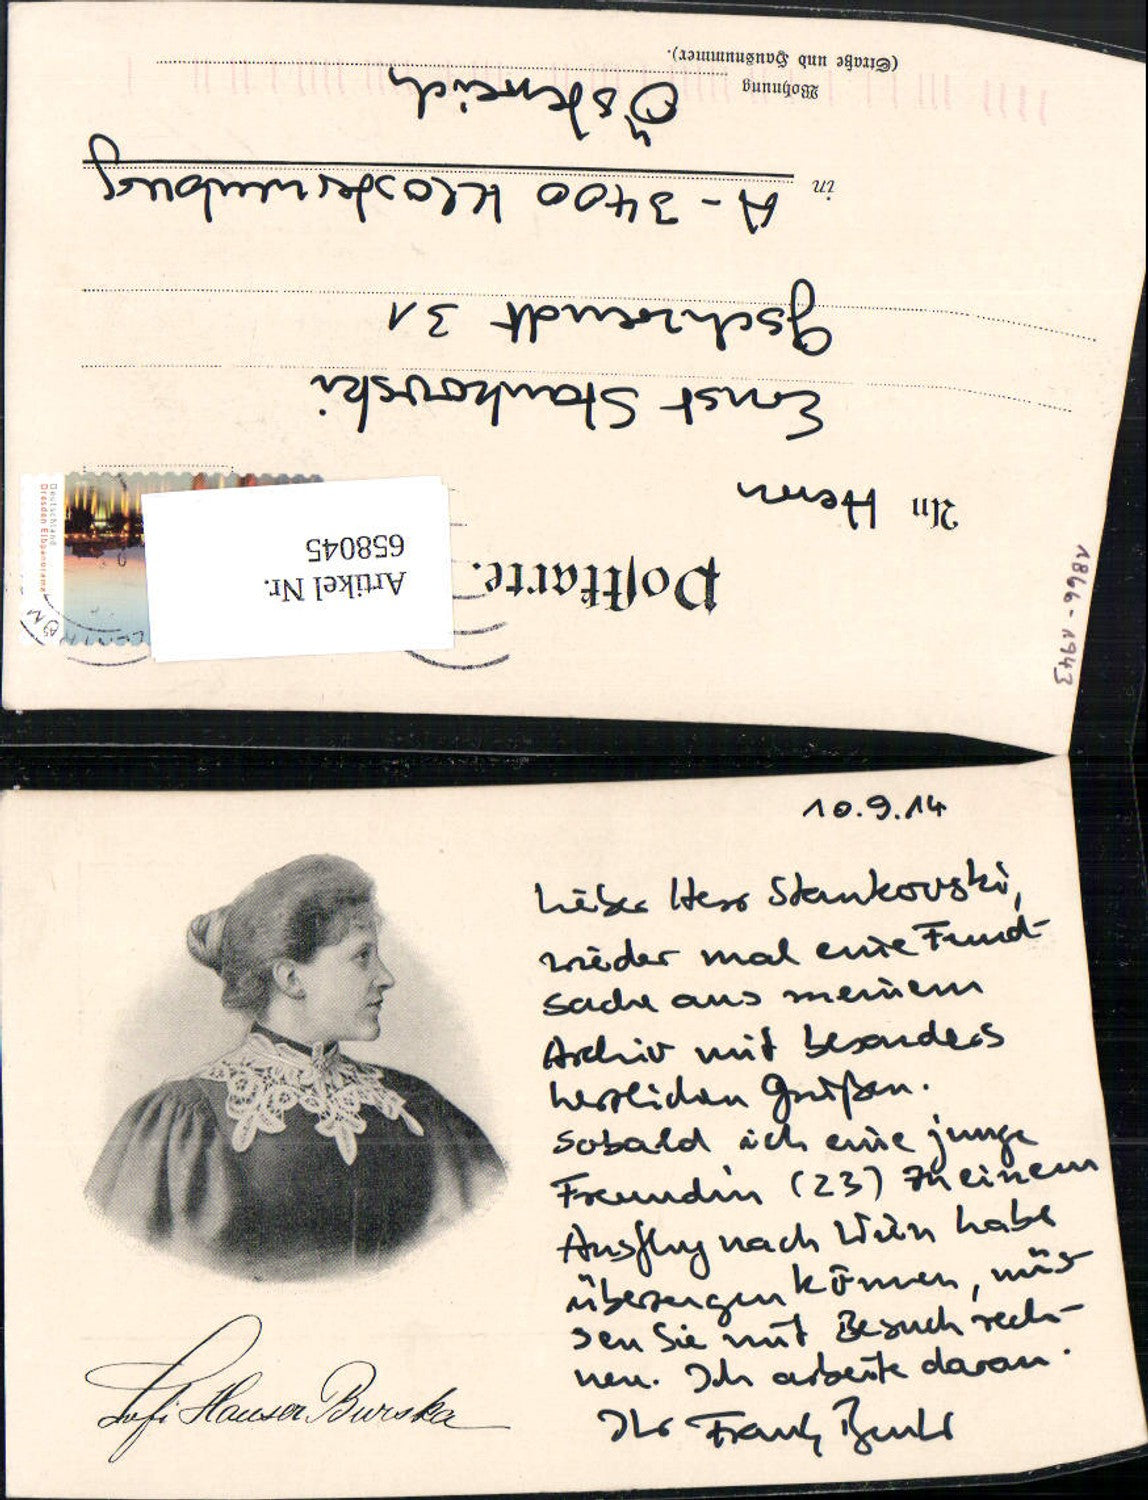 (Straße und Hausnummer).
Wohnung
Österreich
in A-3400 Klosterneuburg
Gschwendt 31
Ernst Stankovski
An Herrn
Postkarte.
Artikel Nr.
658045
Deutschland
Dresden Elbpanorama
1866-1943
10.9.14
Lieber Herr Stankovski,
wieder mal eine Fund-
sache aus meinem
Archiv mit besonders
herzlichen Grüßen.
Sobald ich eine junge
Freundin (23) zu einem
Ausflug nach Wien habe
überzeugen können, müs-
sen Sie mit Besuch rech-
nen. Ich arbeite daran.
Ihr Frank
Sofi Hauser Burska